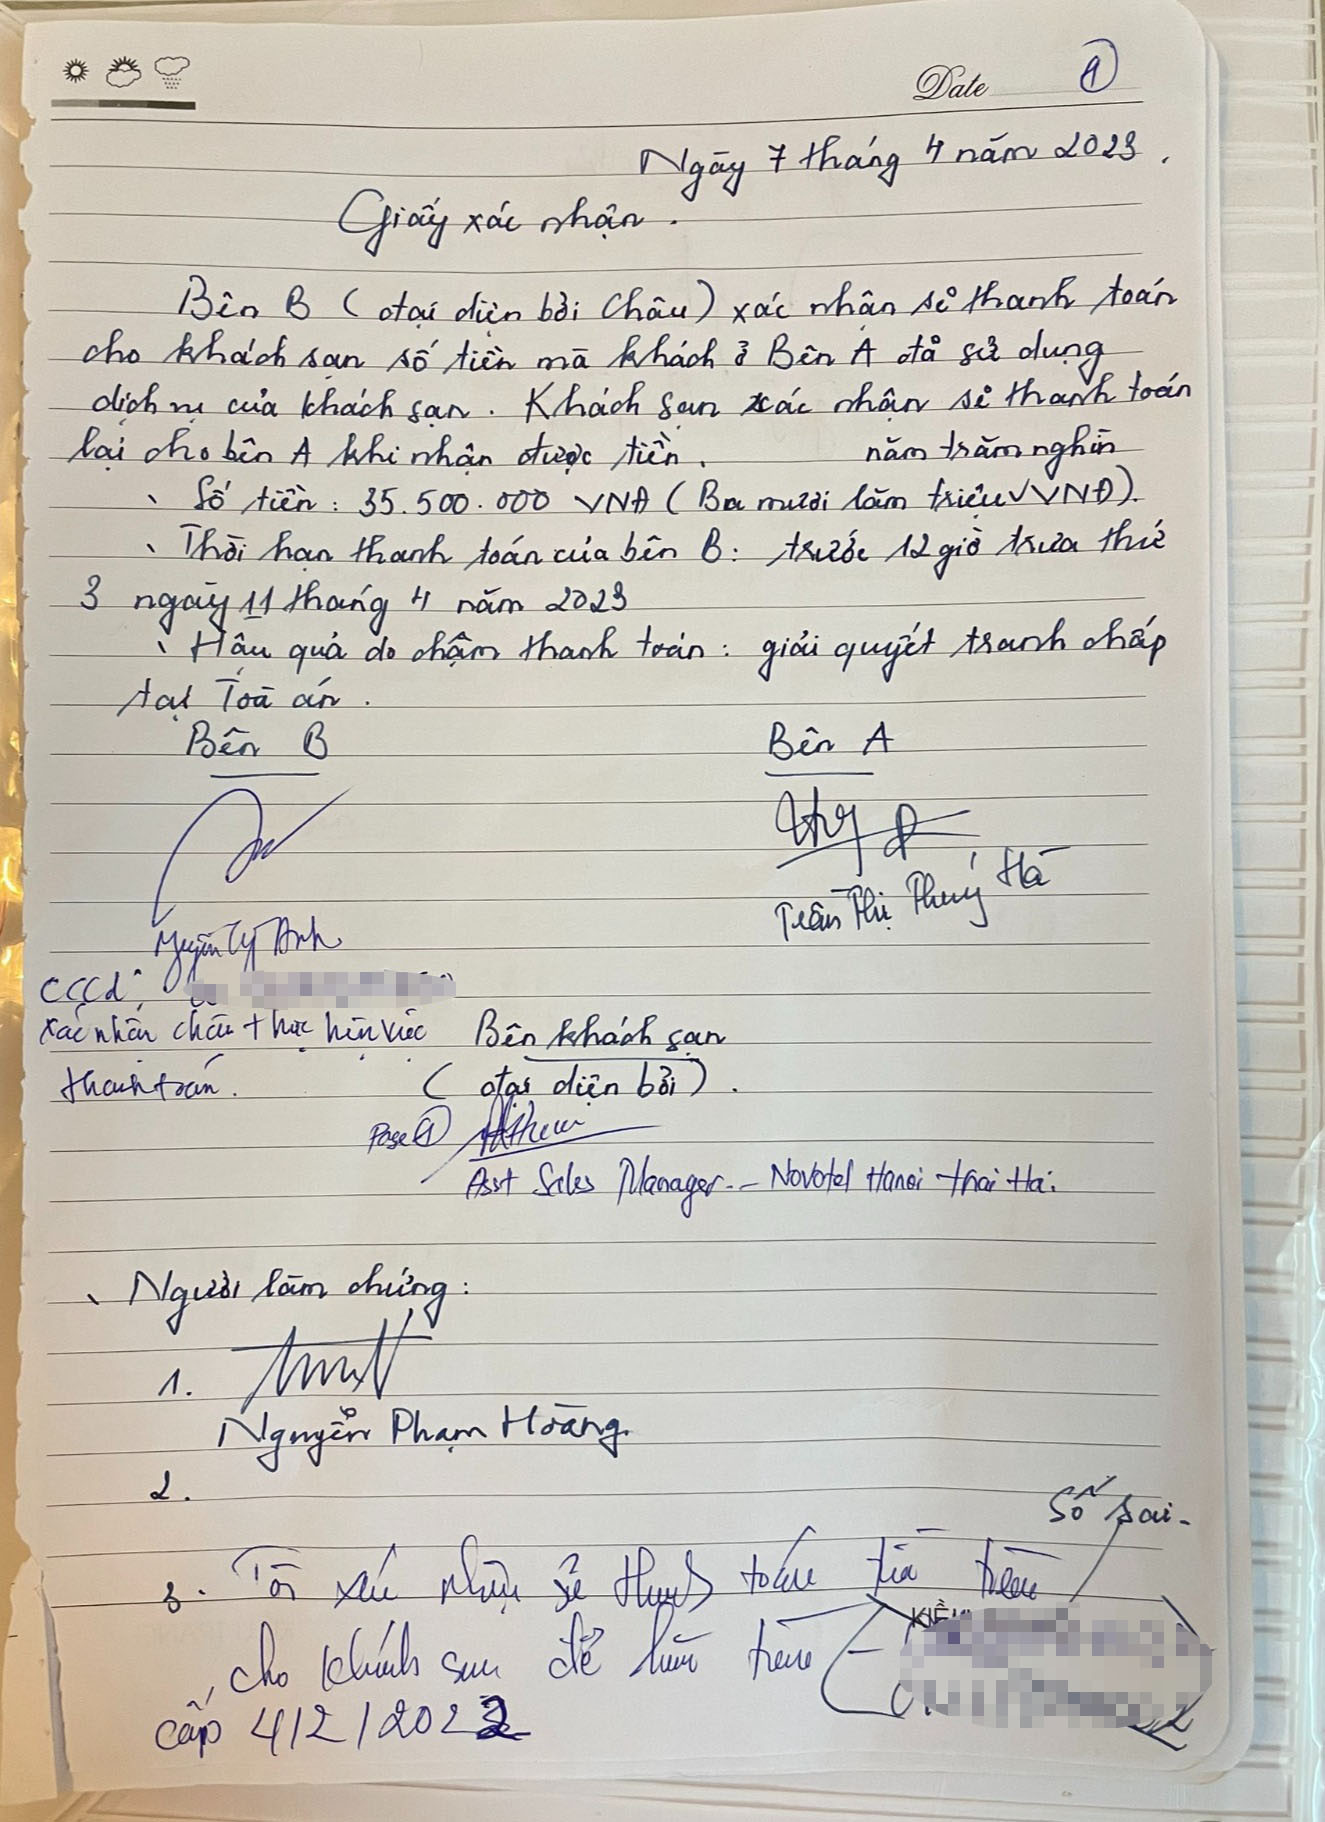 Date
1
Ngày 7 tháng 4 năm 2023.
Giấy xác nhận.
Bên B (đại diện bởi Châu) xác nhận sẽ thanh toán
cho khách sạn số tiền mà khách ở Bên A đã sử dụng
dịch vụ của khách sạn. Khách sạn xác nhận sẽ thanh toán
lại cho bên A khi nhận được tiền.
năm trăm nghìn
Số tiền: 35.500.000 VNĐ (Ba mươi lăm triệu√VNĐ).
Thời hạn thanh toán của bên B: trước 12 giờ trưa thứ
3 ngày 11 tháng 4 năm 2023
Hậu quả do chậm thanh toán: giải quyết tranh chấp
tại Toà án.
Bên B
Bên A
Trần Thị Thuý Hà
Nguyễn Lý Anh
CCCD:
xác nhận Châu thực hiện việc
thanh toán.
Bên khách sạn
(đại diện bởi).
Page 1
Asst Sales Manager - Novotel Hanoi Thai Ha.
Người làm chứng:
1.
Nguyễn Phạm Hoàng.
2.
Số sai.
3. Tôi xác nhận sẽ thanh toán tiền
cho khách sạn để
KIỀU
cấp 4/2/2022